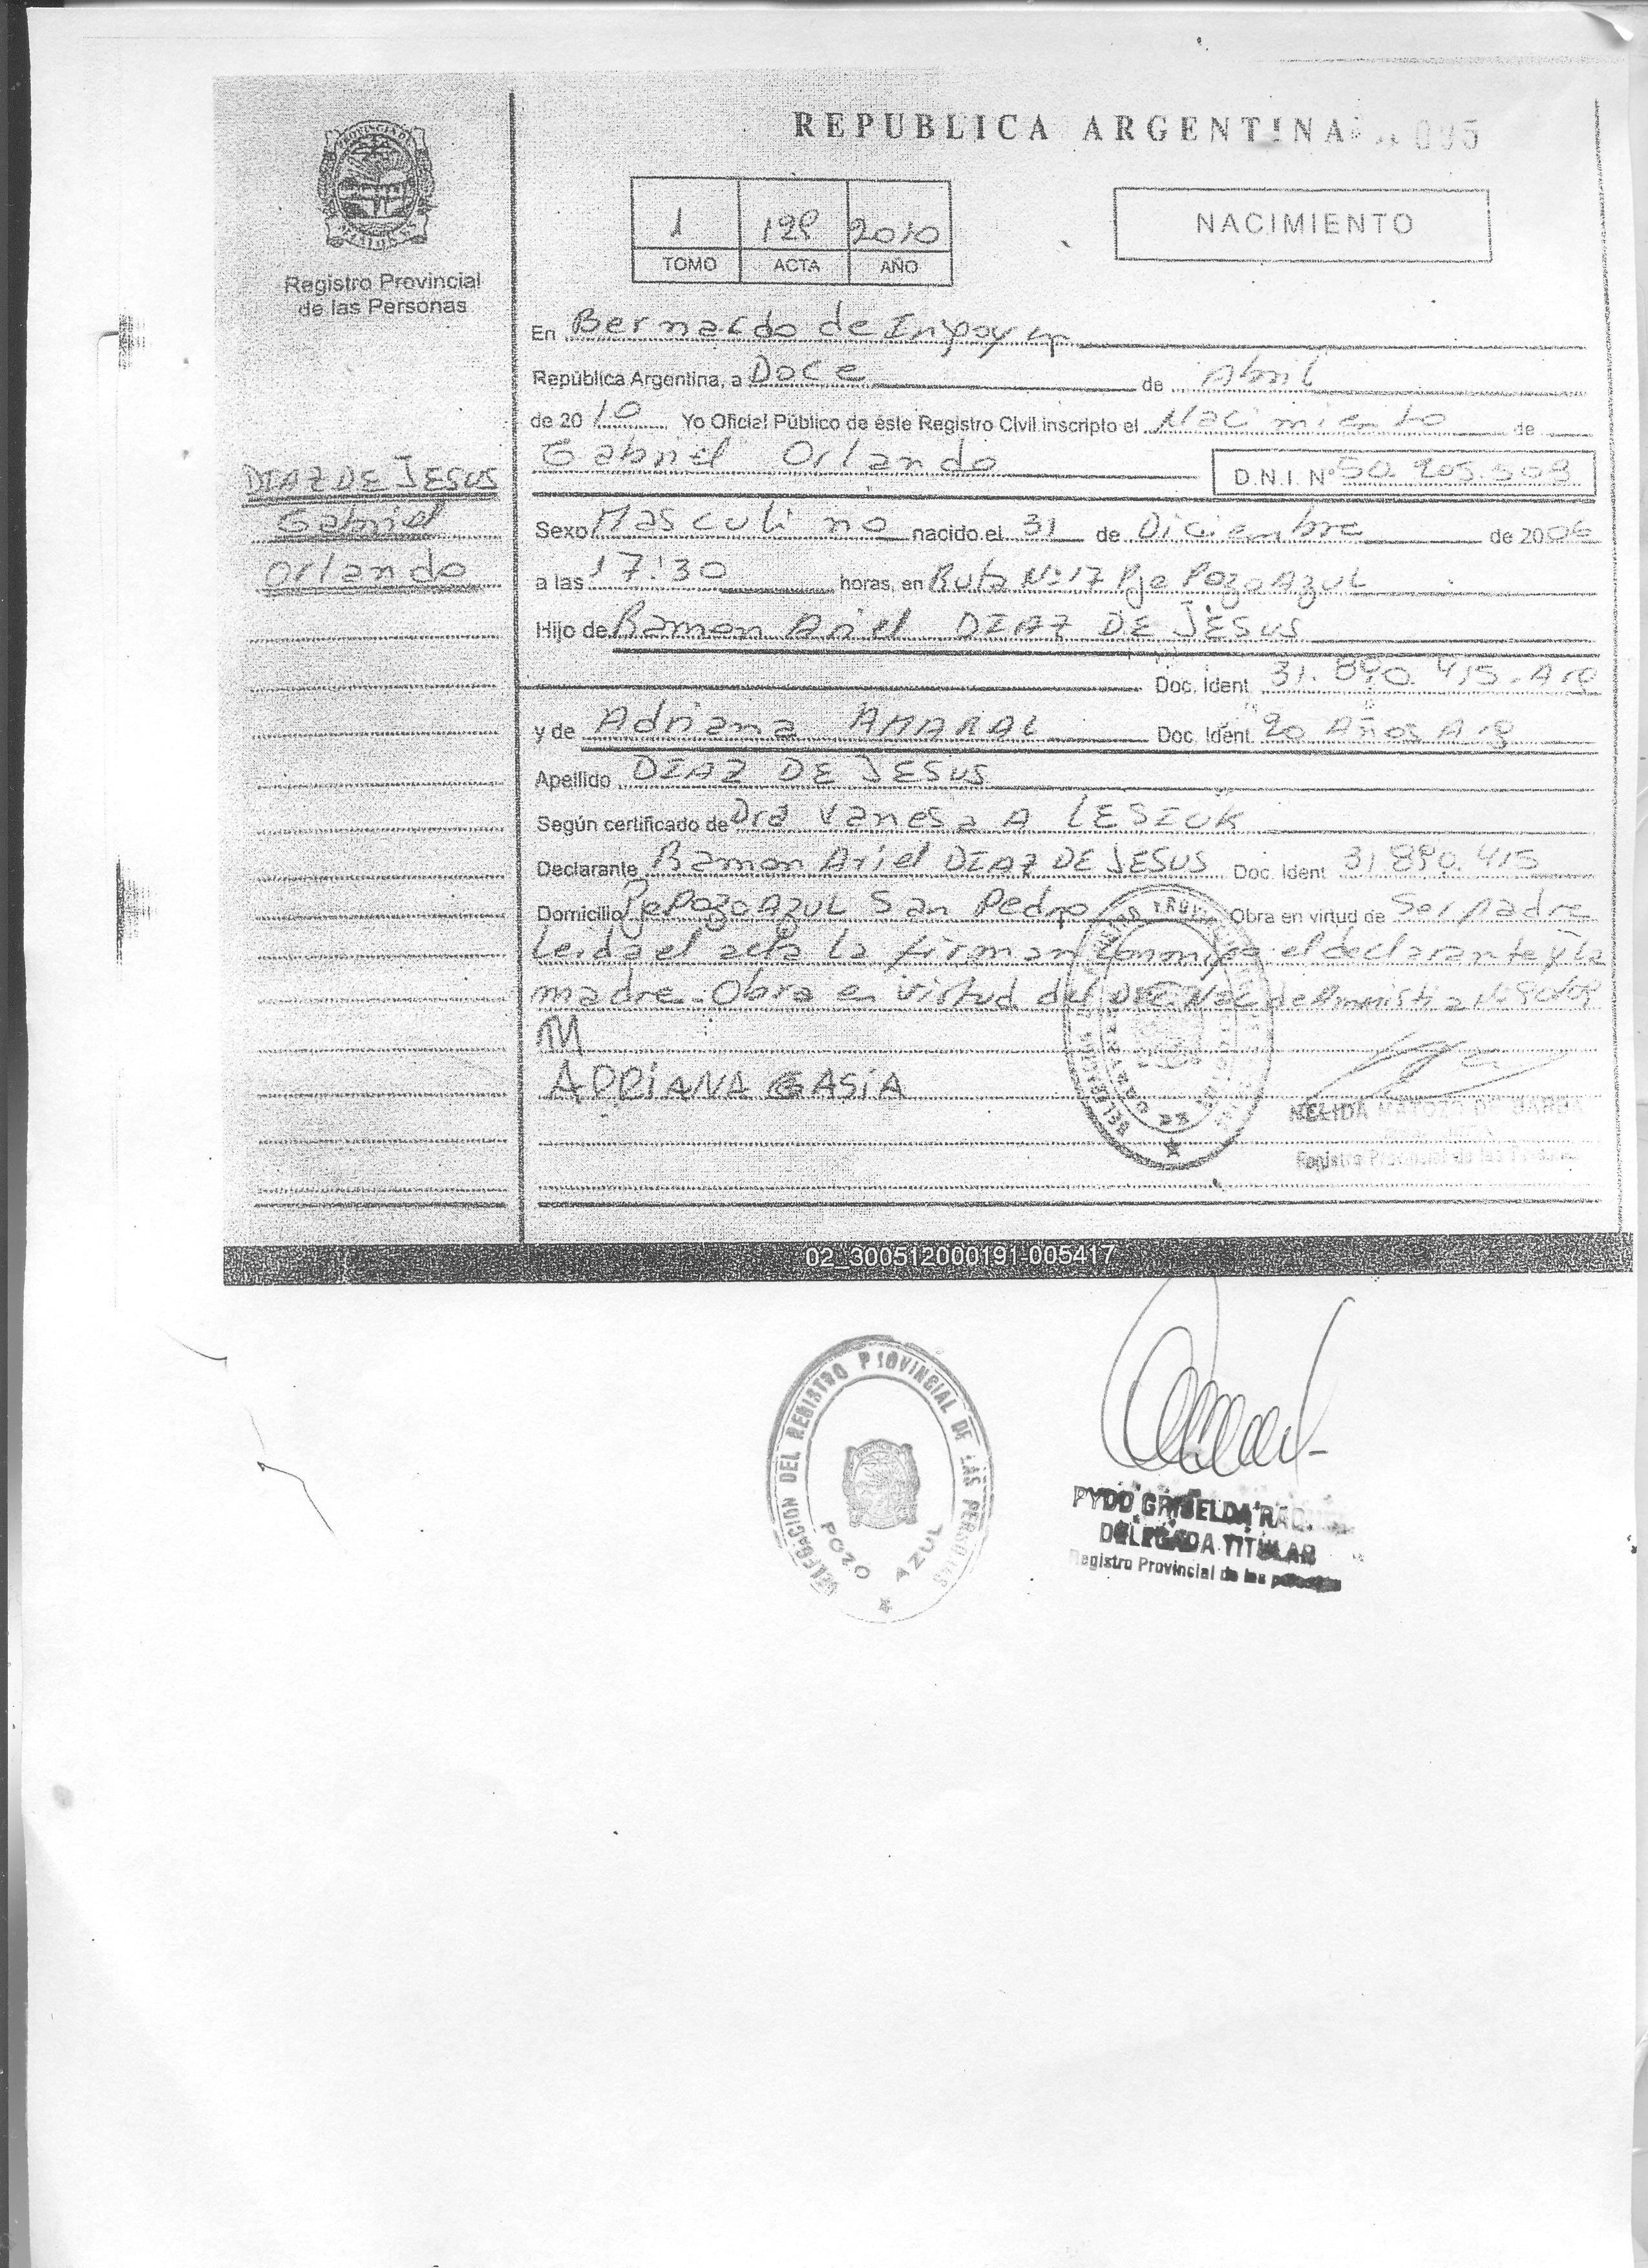 REPUBLICA ARGENTINA
005
1 129 2010
TOMO ACTA AÑO
NACIMIENTO
Registro Provincial
de las Personas
En Bernardo de Irigoyen
República Argentina, a Doce de Abril
de 2010 Yo Oficial Público de éste Registro Civil inscripto el Nacimiento de
Gabriel Orlando D.N.I. Nº 50.205.509
DIAZ DE JESUS
Gabriel
Orlando
Sexo Masculino nacido el 31 de Diciembre de 2006
a las 17:30 horas, en Ruta Nº 17 Pje Pozo Azul
Hijo de Ramon Ariel DIAZ DE JESUS
Doc. Ident 31.890.415. Arg
y de Adriana AMARAL Doc. Ident. 20 Años Arg
Apellido DIAZ DE JESUS
Según certificado de Dra Vanesa A LESIUK
Declarante Ramon Ariel DIAZ DE JESUS Doc. Ident 31890.415
Domicilio Pje Pozo Azul San Pedro Obra en virtud de Ser padre
Leida el acta la firman conmigo el declarante y la
madre - Obra en virtud del DEC. Nac de Amnistia Nº
ADRIANA
NELIDA
Registro Provincial de las
02_300512000191-005417
DELEGACION DEL REGISTRO PROVINCIAL DE LAS PERSONAS
POZO AZUL
PYDD GRISELDA
DELEGADA TITULAR
Registro Provincial de las